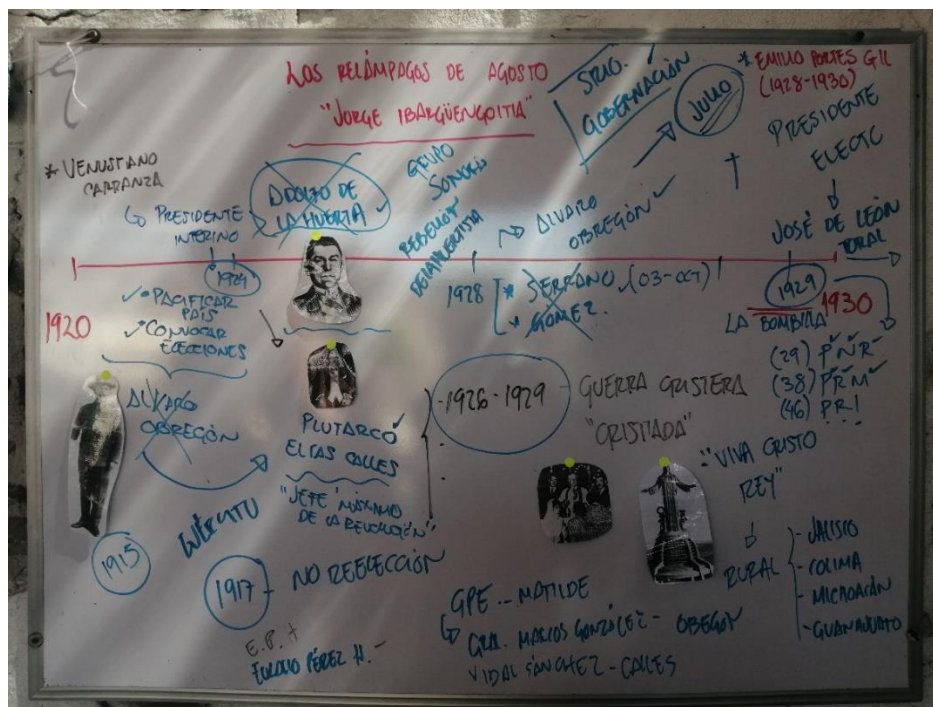 LOS RELÁMPAGOS DE AGOSTO
"JORGE IBARGÜENGOITIA"
SRIO.
GOBERNACIÓN
JULIO
* EMILIO PORTES GIL
(1928-1930)
PRESIDENTE
ELECTO
JOSÉ DE LEÓN
TORAL
* VENUSTIANO
CARRANZA
PRESIDENTE
INTERINO
ADOLFO DE
LA HUERTA
GRUPO
SONORA
REBELIÓN
DELAHUERTISTA
ALVARO
OBREGÓN
1920
• PACIFICAR
PAÍS
• CONVOCAR
ELECCIONES
1928
* SERRANO (03-OCT)
* GOMEZ.
1929
1930
LA BOMBILLA
(29) PNR
(38) PRM
(46) PRI
ALVARO
OBREGÓN
PLUTARCO
ELÍAS CALLES
"JEFE MÁXIMO
DE LA REVOLUCIÓN"
-1926-1929
GUERRA CRISTERA
"CRISTIADA"
"VIVA CRISTO
REY"
RURAL
- JALISIO
- COLIMA
- MICHOACÁN
- GUANAJUATO
1915
1917 - NO REELECCIÓN
E.P. +
EULALIO PÉREZ H. -
GPE -- MATILDE
GRAL. MARCOS GONZÁLEZ - OBEGÓN
VIDAL SÁNCHEZ - CALLES